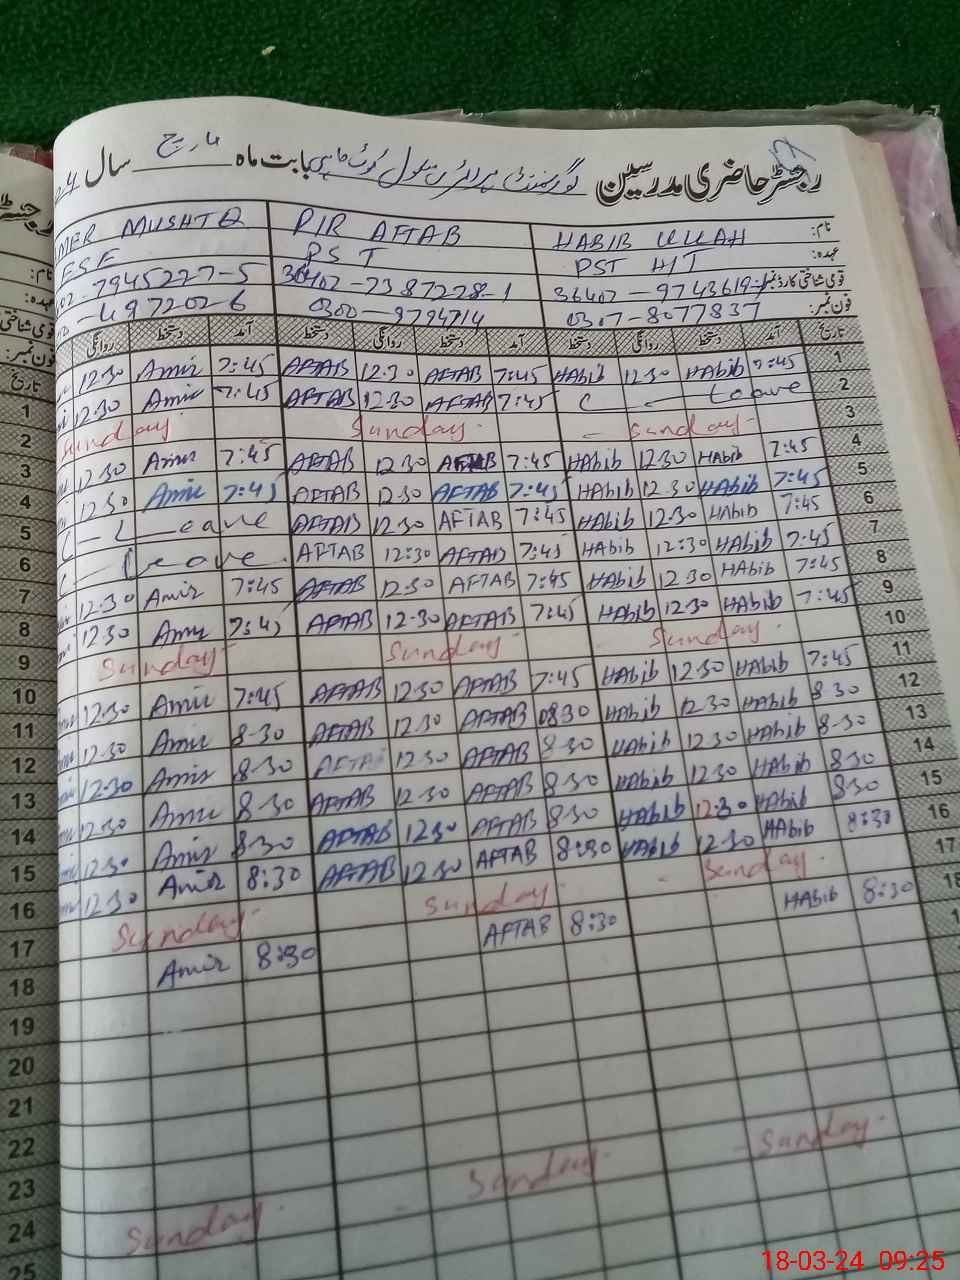 رجسٹر حاضری مدرسین گورنمنٹ پرائمری سکول کوٹ بابت ماہ مارچ سال 24
نام: HABIB ULLAH PIR AFTAB MER MUSHTQ
عہدہ: PST H/T PST ESE
قومی شناختی کارڈ نمبر 36402-9743619-1 36402-7387228-1 -7945227-5
فون نمبر: 0307-8077837 0300-9794714 -4972026
تاریخ آمد دستخط روانگی دستخط آمد دستخط روانگی دستخط آمد دستخط روانگی
1 7:45 Habib 12:30 Habib 7:45 AFTAB 12:30 AFTAB 7:45 Amir 12:30
2 Leave 7:45 AFTAB 12:30 AFTAB 7:45 Amir 12:30
3 Sunday Sunday Sunday
4 7:45 HAbib 12:30 HAbib 7:45 AFTAB 12:30 AFTAB 7:45 Amir 12:30
5 7:45 HAbib 12:30 HAbib 7:45 AFTAB 12:30 AFTAB 7:45 Amir 12:30
6 7:45 HAbib 12:30 HAbib 7:45 AFTAB 12:30 AFTAB Leave
7 7:45 HAbib 12:30 HAbib 7:45 AFTAB 12:30 AFTAB Leave
8 7:45 HAbib 12:30 HAbib 7:45 AFTAB 12:30 AFTAB 7:45 Amir 12:30
9 7:45 HAbib 12:30 HAbib 7:45 AFTAB 12:30 AFTAB 7:45 Amir 12:30
10 Sunday Sunday Sunday
11 7:45 HAbib 12:30 HAbib 7:45 AFTAB 12:30 AFTAB 7:45 Amir 12:30
12 8:30 HAbib 12:30 HAbib 08:30 AFTAB 12:30 AFTAB 8:30 Amir 12:30
13 8:30 HAbib 12:30 HAbib 8:30 AFTAB 12:30 AFTAB 8:30 Amir 12:30
14 8:30 HAbib 12:30 HAbib 8:30 AFTAB 12:30 AFTAB 8:30 Amir 12:30
15 8:30 HAbib 12:30 HAbib 8:30 AFTAB 12:30 AFTAB 8:30 Amir 12:30
16 8:30 HAbib 12:30 HAbib 8:30 AFTAB 12:30 AFTAB 8:30 Amir 12:30
17 Sunday Sunday Sunday
18 8:30 HAbib 8:30 AFTAB 8:30 Amir
Sunday Sunday Sunday
رجسٹر
نام:
عہدہ:
قومی شناختی
فون نمبر:
تاریخ
1
2
3
4
5
6
7
8
9
10
11
12
13
14
15
16
17
18
19
20
21
22
23
24
25
18-03-24 09:25